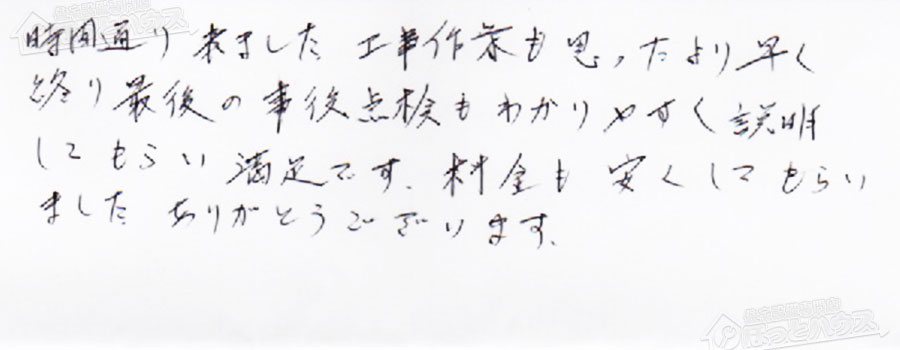 時間通り来ました 工事作業も思ったより早く
終り最後の事後点検もわかりやすく説明
してもらい満足です。料金も安くしてもらい
ました ありがとうございます。
ほっとハウス